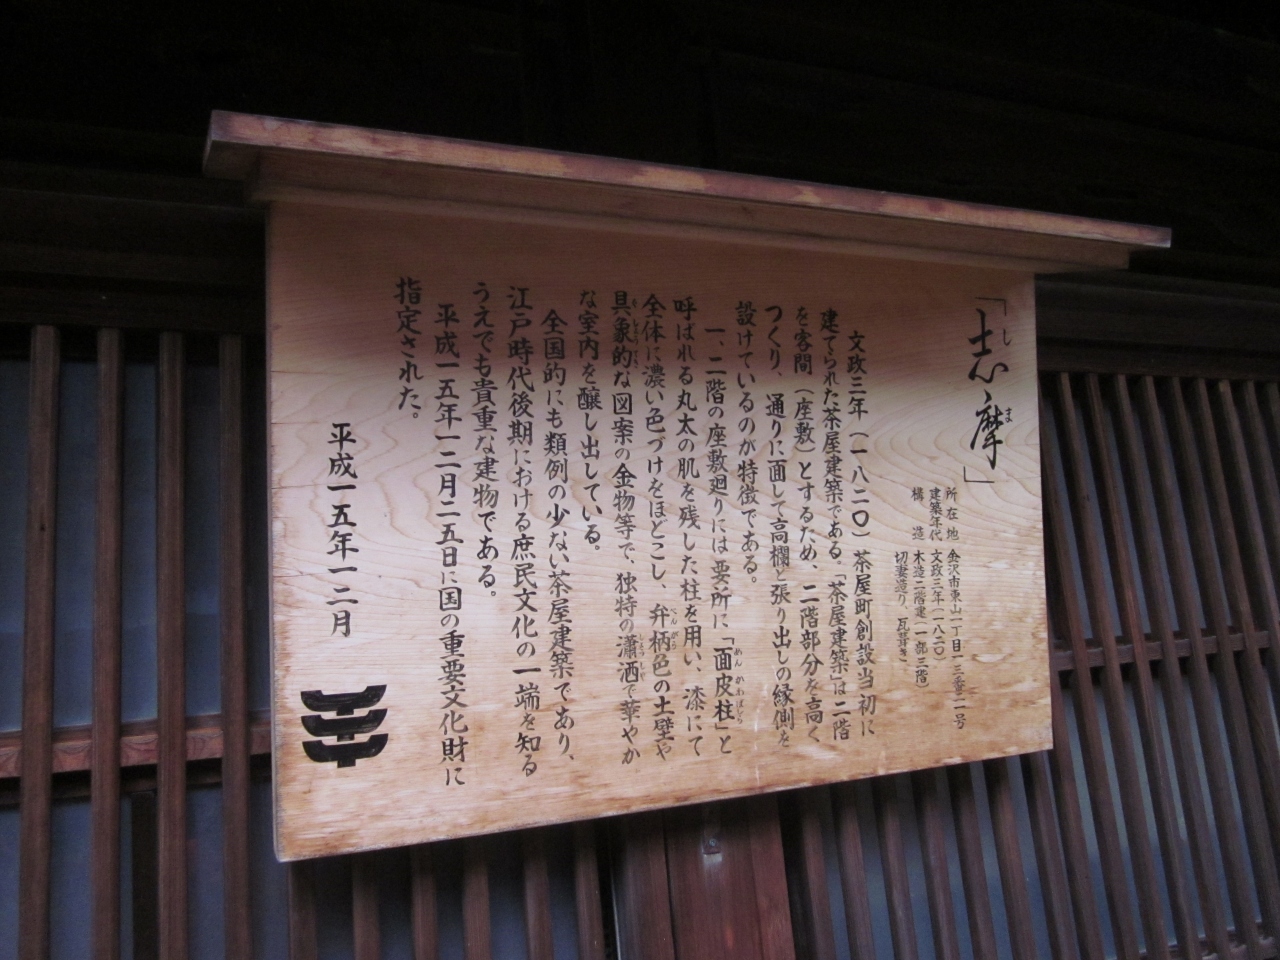 「志摩」
所在地 金沢市東山一丁目一三番二一号
建築年代 文政三年(一八二〇)
構造 木造二階建(一部三階)
切妻造り、瓦葺き
文政三年(一八二〇)茶屋町創設当初に
建てられた茶屋建築である。「茶屋建築」は二階
を客間(座敷)とするため、二階部分を高く
つくり、通りに面して高欄と張り出しの縁側を
設けているのが特徴である。
一、二階の座敷廻りには要所に「面皮柱」と
呼ばれる丸太の肌を残した柱を用い、漆にて
全体に濃い色づけをほどこし、弁柄色の土壁や
具象的な図案の金物等で、独特の瀟洒で華やか
な室内を醸し出している。
全国的にも類例の少ない茶屋建築であり、
江戸時代後期における庶民文化の一端を知る
うえでも貴重な建物である。
平成一五年一二月二五日に国の重要文化財に
指定された。
平成一五年一二月